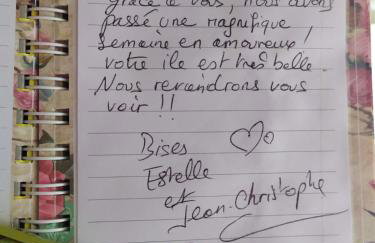 grâce à vous, nous avons
passé une magnifique
semaine en amoureux !
votre île est très belle.
Nous reviendrons vous
voir !!
Bises
Estelle
et
Jean-Christophe